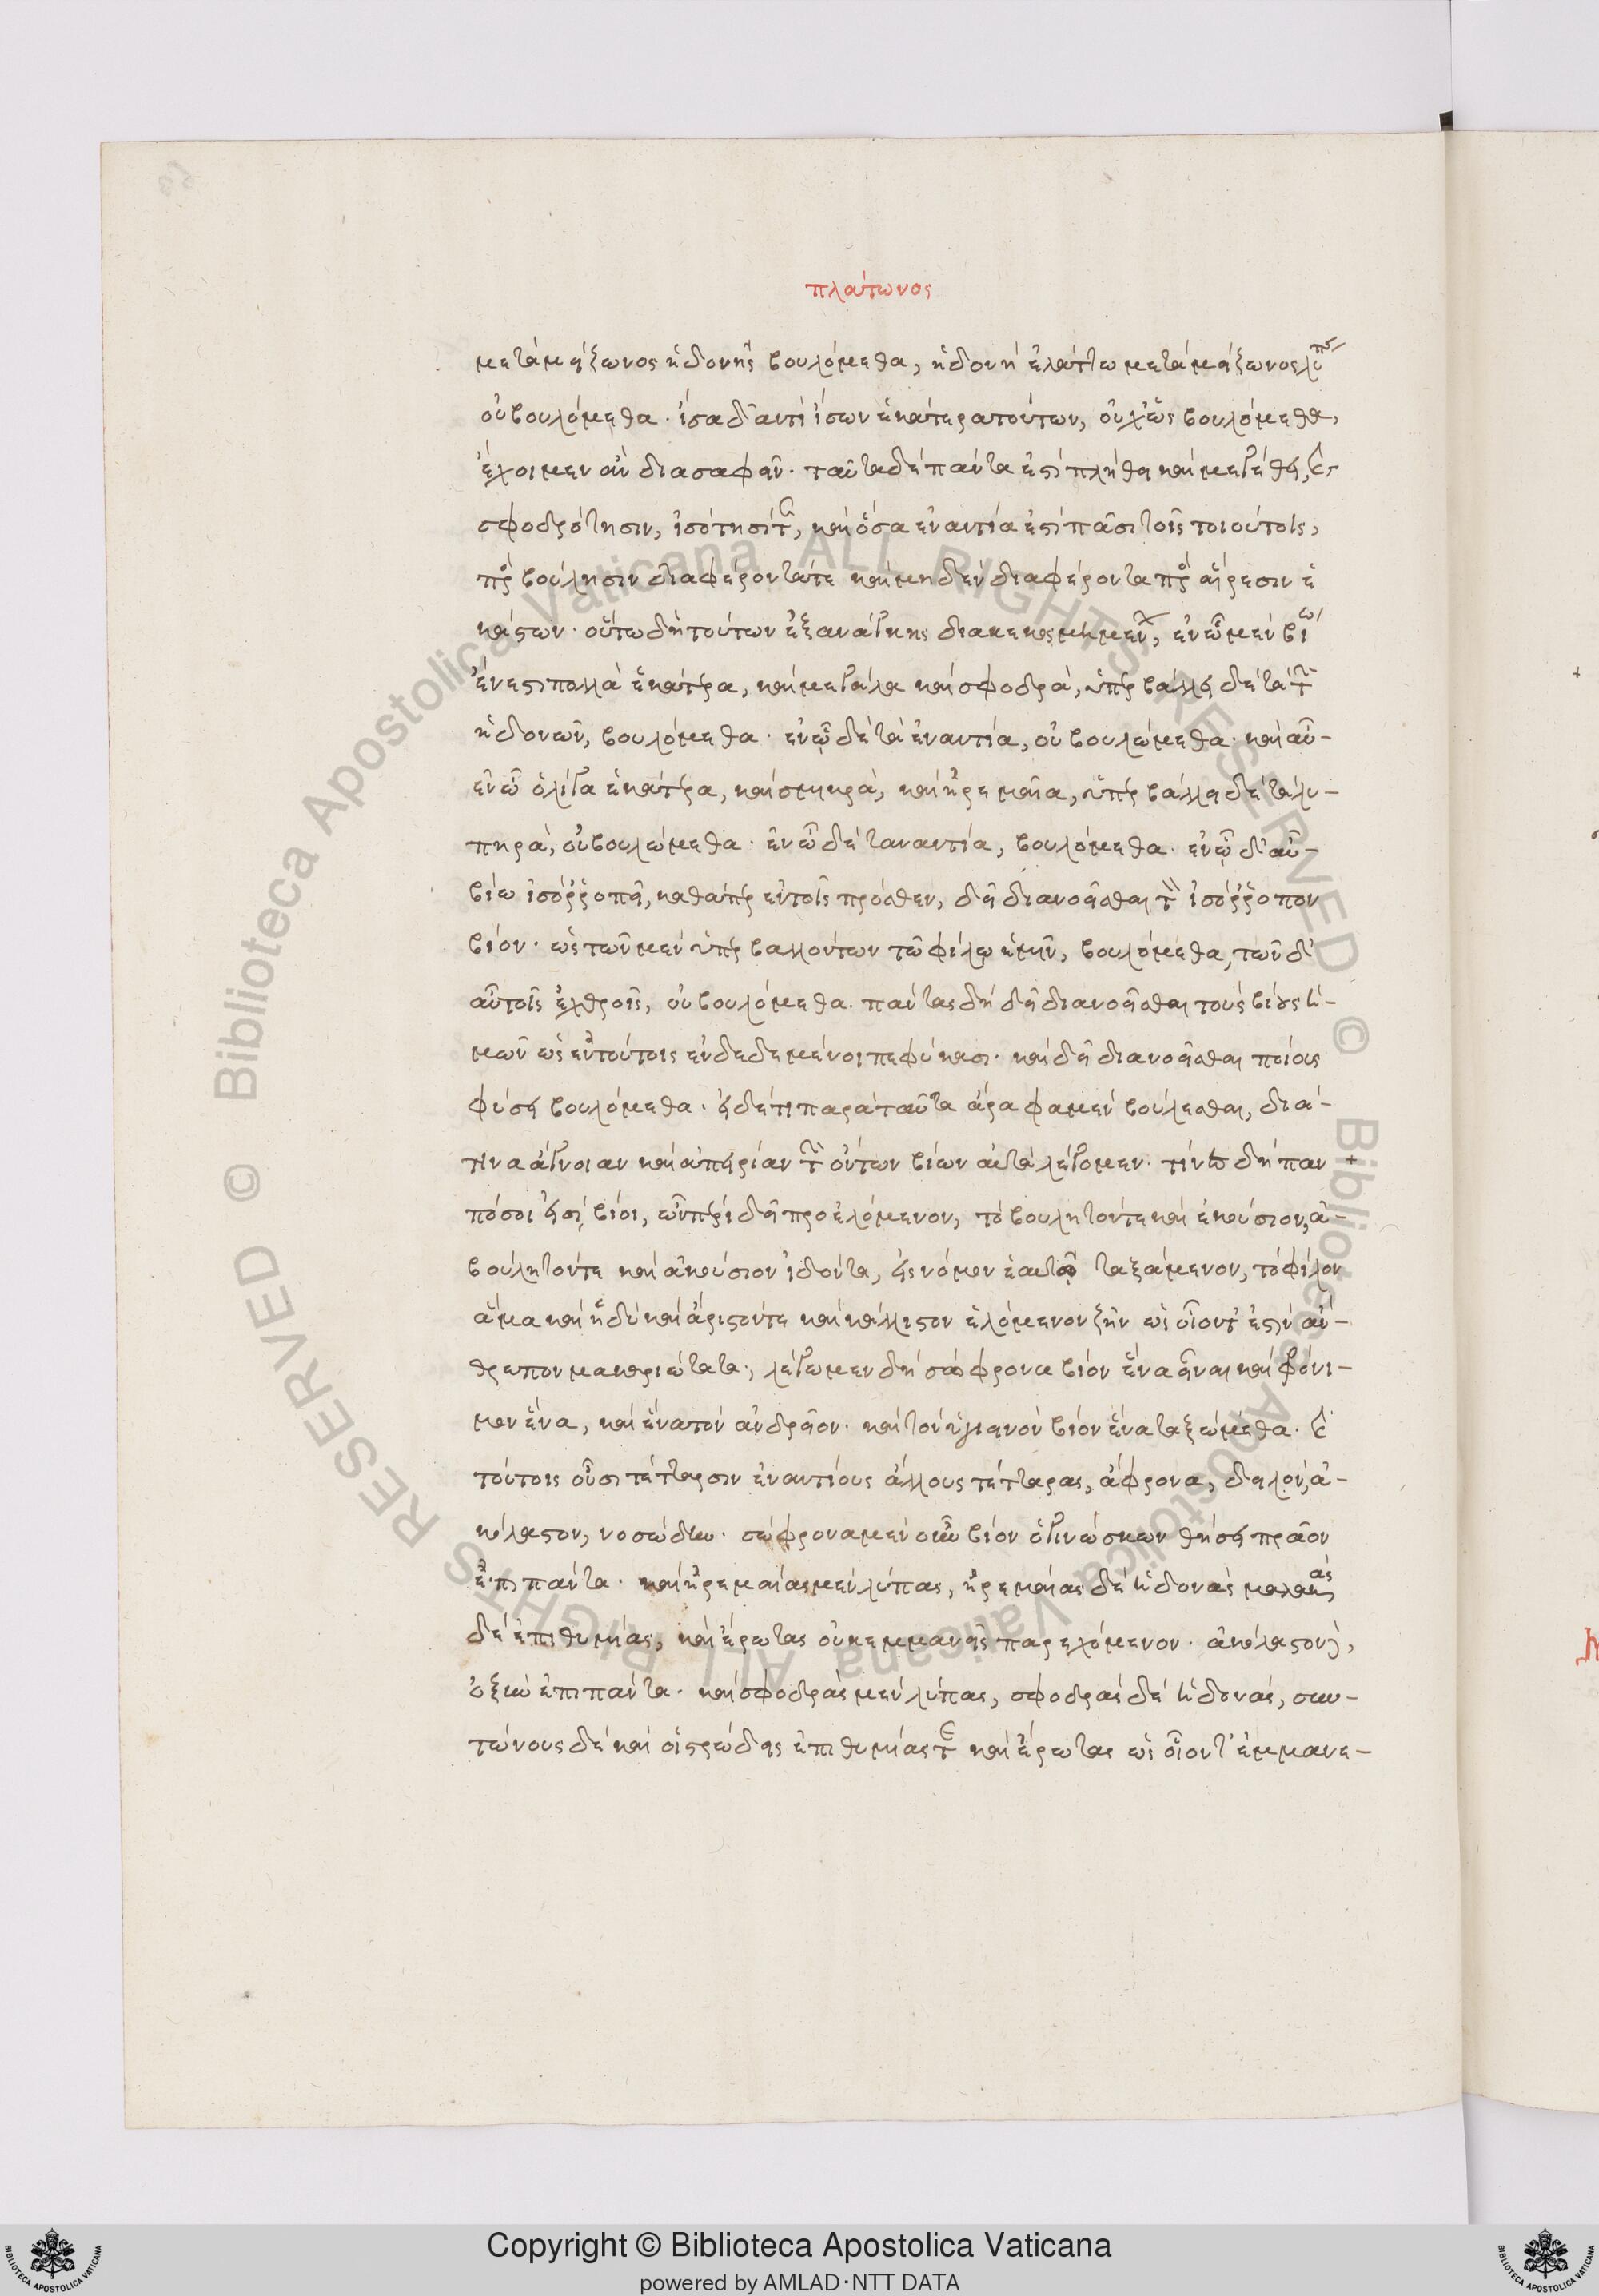 πλάτωνος
μετὰ μείζωνος ἡδονῆς βουλόμεθα, ἡδονὴ ἐλάττω μετὰ μείζωνος λύπης
οὐ βουλόμεθα· ἴσα δ' ἀντὶ ἴσων ἑκάτερα τούτων, οὐχ ὡς βουλόμεθα,
ἔχοιμεν ἂν διασαφεῖν· ταῦτα δὲ πάντα ἐστὶ πλήθη καὶ μεγέθει, καὶ
σφοδρότησιν, ἰσότησί τε, καὶ ὅσα ἐναντία ἐστὶ πᾶσι τοῖς τοιούτοις,
πρὸς βούλησιν διαφέροντά τε καὶ μηδὲν διαφέροντα πρὸς αἵρεσιν ἑ
κάστων· οὕτω δὴ τούτων ἐξ ἀνάγκης διακεκοσμημένων, ἐν ᾧ μὲν βίῳ
ἔνεστι πολλὰ ἑκάτερα, καὶ μεγάλα καὶ σφοδρά, ὑπερβάλλει δὲ τὰ τῶν
ἡδονῶν, βουλόμεθα· ἐν ᾧ δὲ τὰ ἐναντία, οὐ βουλώμεθα· καὶ αὖ-
ἐν ᾧ ὀλίγα ἑκάτερα, καὶ σμικρά, καὶ ἠρεμαῖα, ὑπερβάλλει δὲ τὰ λυ-
πηρά, οὐ βουλώμεθα· ἐν ᾧ δὲ τἀναντία, βουλόμεθα· ἐν ᾧ δ' αὖ-
βίω ἰσόρροπεῖ, καθάπερ ἐν τοῖς πρόσθεν, δεῖ διανοεῖσθαι τὸν ἰσόρροπον
βίον· ὡς τῶν μὲν ὑπερβαλλόντων τῷ φίλῳ ἡμῖν, βουλόμεθα, τῶν δ'
αὖ τοῖς ἐχθροῖς, οὐ βουλόμεθα. πάντας δὴ δεῖ διανοεῖσθαι τοὺς βίους ἡ-
μῶν ὡς ἐν τούτοις ἐνδεδεμένοι πεφύκασι· καὶ δεῖ διανοεῖσθαι ποίους
φύσει βουλόμεθα· εἰ δέ τι παρὰ ταῦτα ἄρα φαμὲν βούλεσθαι, διά-
τινα ἄγνοιαν καὶ ἀπειρίαν τῶν ὄντων βίων αὐτὰ λέγομεν· τίνες δὴ καὶ
πόσοι εἰσὶ βίοι, ὧν πέρι δεῖ προελόμενον, τὸ βουλητόν τε καὶ ἑκούσιον, ἀ-
βούλητόν τε καὶ ἀκούσιον ἰδόντα, εἰς νόμον ἑαυτῷ ταξάμενον, τὸ φίλον
ἅμα καὶ ἡδὺ καὶ ἄριστόν τε καὶ κάλλιστον ἑλόμενον ζῆν ὡς οἷόν τ' ἐστὶν ἄν-
θρωπον μακαριώτατα; λέγωμεν δὴ σώφρονα βίον ἕνα εἶναι καὶ φρόνι-
μον ἕνα, καὶ ἕνα τὸν ἀνδρεῖον· καὶ τὸν ὑγιεινὸν βίον ἕνα ταξώμεθα· καὶ
τούτοις οὖσι τέτταρσιν ἐναντίους ἄλλους τέτταρας, ἄφρονα, δειλόν, ἀ-
κόλαστον, νοσώδη· σώφρονα μὲν οὖν βίον ὁ γινώσκων θήσει πρᾶον
ἐπὶ πάντα· καὶ ἠρεμαίας μὲν λύπας, ἠρεμαίας δὲ ἡδονὰς μαλακὰς
δὲ ἐπιθυμίας, καὶ ἔρωτας οὐκ ἐμμανεῖς παρεχόμενον· ἀκόλαστον δὲ,
ὀξὺν ἐπὶ πάντα· καὶ σφοδρὰς μὲν λύπας, σφοδρὰς δὲ ἡδονάς, συν-
τώνους δὲ καὶ οἰστρώδεις ἐπιθυμίας τε καὶ ἔρωτας ὡς οἷόν τ' ἐμμανε-